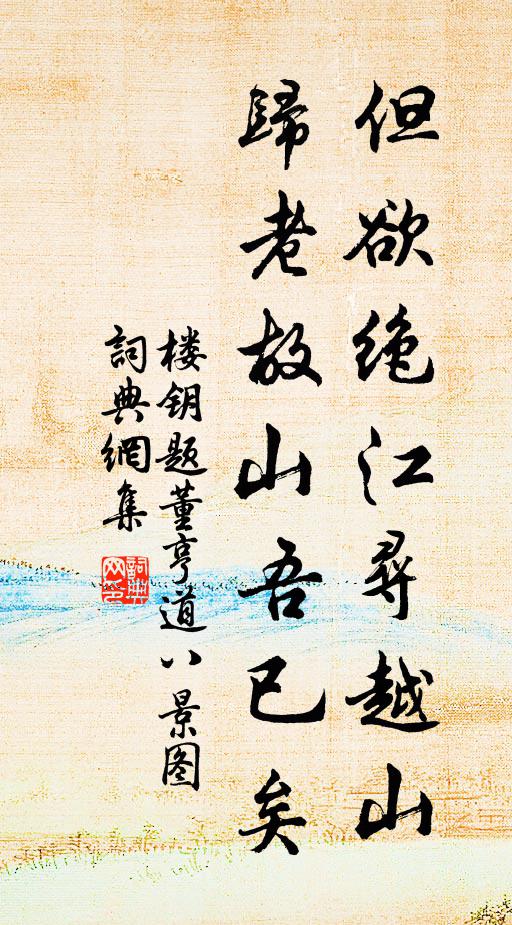 但欲绝江尋越山
歸老故山吾已矣
楼钥题董亨道八景图
詞典網集
詞典
网印